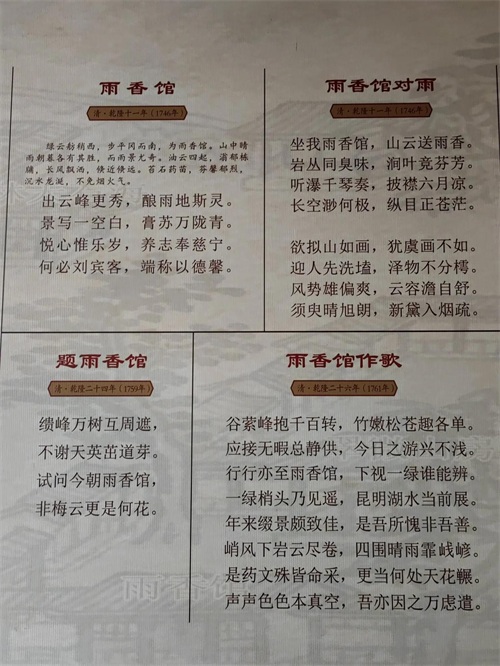 雨香馆
清·乾隆十一年（1746年）
绿云舫稍西，步平冈而南，为雨香馆。山中晴
雨朝暮各有其胜，而雨景尤奇。油云四起，滃郁栋
牖，长风飘洒，倏近倏远。苔石药苗，芬馨郁烈，
沉水龙涎，不免烟火气。
出云峰更秀，酿雨地斯灵。
景写一空白，膏苏万陇青。
悦心惟乐岁，养志奉慈宁。
何必刘宾客，端称以德馨。
雨香馆对雨
清·乾隆十一年（1746年）
坐我雨香馆，山云送雨香。
岩丛同臭味，涧叶竞芬芳。
听瀑千琴奏，披襟六月凉。
长空渺何极，纵目正苍茫。
欲拟山如画，犹虞画不如。
迎人先洗墙，泽物不分樗。
风势雄偏爽，云容澹自舒。
须臾晴旭朗，新黛入烟疏。
题雨香馆
清·乾隆二十四年（1759年）
缋峰万树互周遮，
不谢天英茁道芽。
试问今朝雨香馆，
非梅云更是何花。
雨香馆作歌
清·乾隆二十六年（1761年）
谷萦峰抱千百转，竹嫩松苍趣各单。
应接无暇总静供，今日之游兴不浅。
行行亦至雨香馆，下视一绿谁能辨。
一绿梢头乃见遥，昆明湖水当前展。
年来缀景颇致佳，是吾所愧非吾善。
峭风下岩云尽卷，四围晴雨霏
是药文殊皆命采，更当何处天花辗。
声声色色本真空，吾亦因之万虑遣。